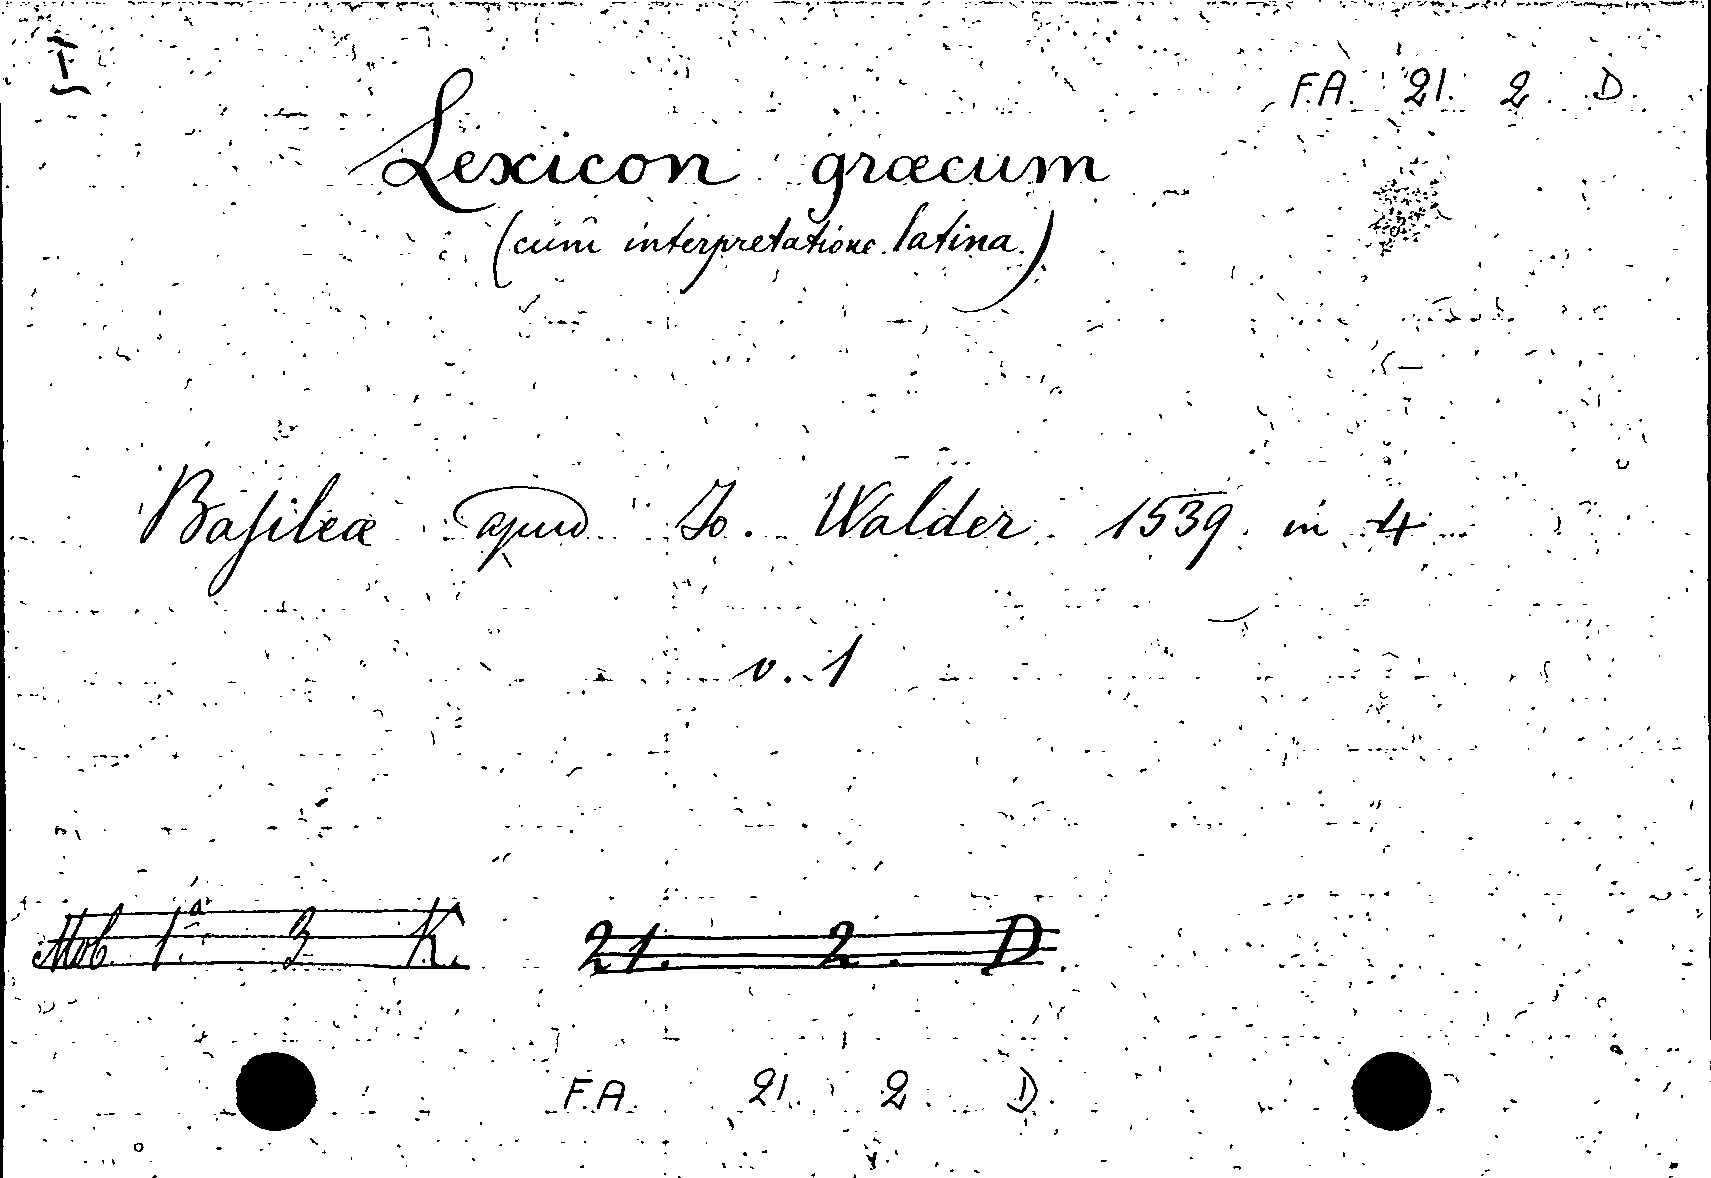 I
F.A. 21. 2 D.
Lexicon græcum
(cum interpretatione latina)
Baſileæ apud Jo. Walder 1539. in 4
v. 1
Mob. 1.ª 3 K. 21. 2. D.
F.A. 21. 2. D.